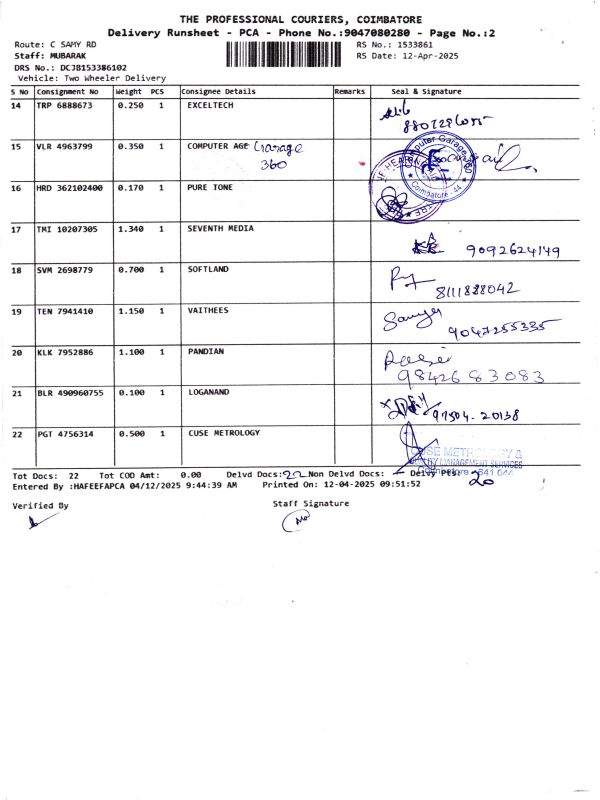 THE PROFESSIONAL COURIERS, COIMBATORE
Delivery Runsheet - PCA - Phone No.:9047080280 - Page No.:2
Route: C SAMY RD
RS No.: 1533861
Staff: MUBARAK
RS Date: 12-Apr-2025
DRS No.: DCJB153386102
Vehicle: Two Wheeler Delivery
S No Consignment No Weight PCS Consignee Details Remarks Seal & Signature
14 TRP 6888673 0.250 1 EXCELTECH
15 VLR 4963799 0.350 1 COMPUTER AGE Garage
360
16 HRD 362102400 0.170 1 PURE TONE
Coimbatore - 44
17 TMI 10207305 1.340 1 SEVENTH MEDIA
9092624149
18 SVM 2698779 0.700 1 SOFTLAND
8111888042
19 TEN 7941410 1.150 1 VAITHEES
9047255335
20 KLK 7952886 1.100 1 PANDIAN
9842683083
21 BLR 490960755 0.100 1 LOGANAND
97504-20138
22 PGT 4756314 0.500 1 CUSE METROLOGY
CUSE METROLOGY &
QUALITY MANAGEMENT SERVICES
Coimbatore - 641 044
Tot Docs: 22 Tot COD Amt: 0.00 Delvd Docs: 22 Non Delvd Docs: Delvy Pts: 20
Entered By :HAFEEFAPCA 04/12/2025 9:44:39 AM Printed On: 12-04-2025 09:51:52
Verified By
Staff Signature